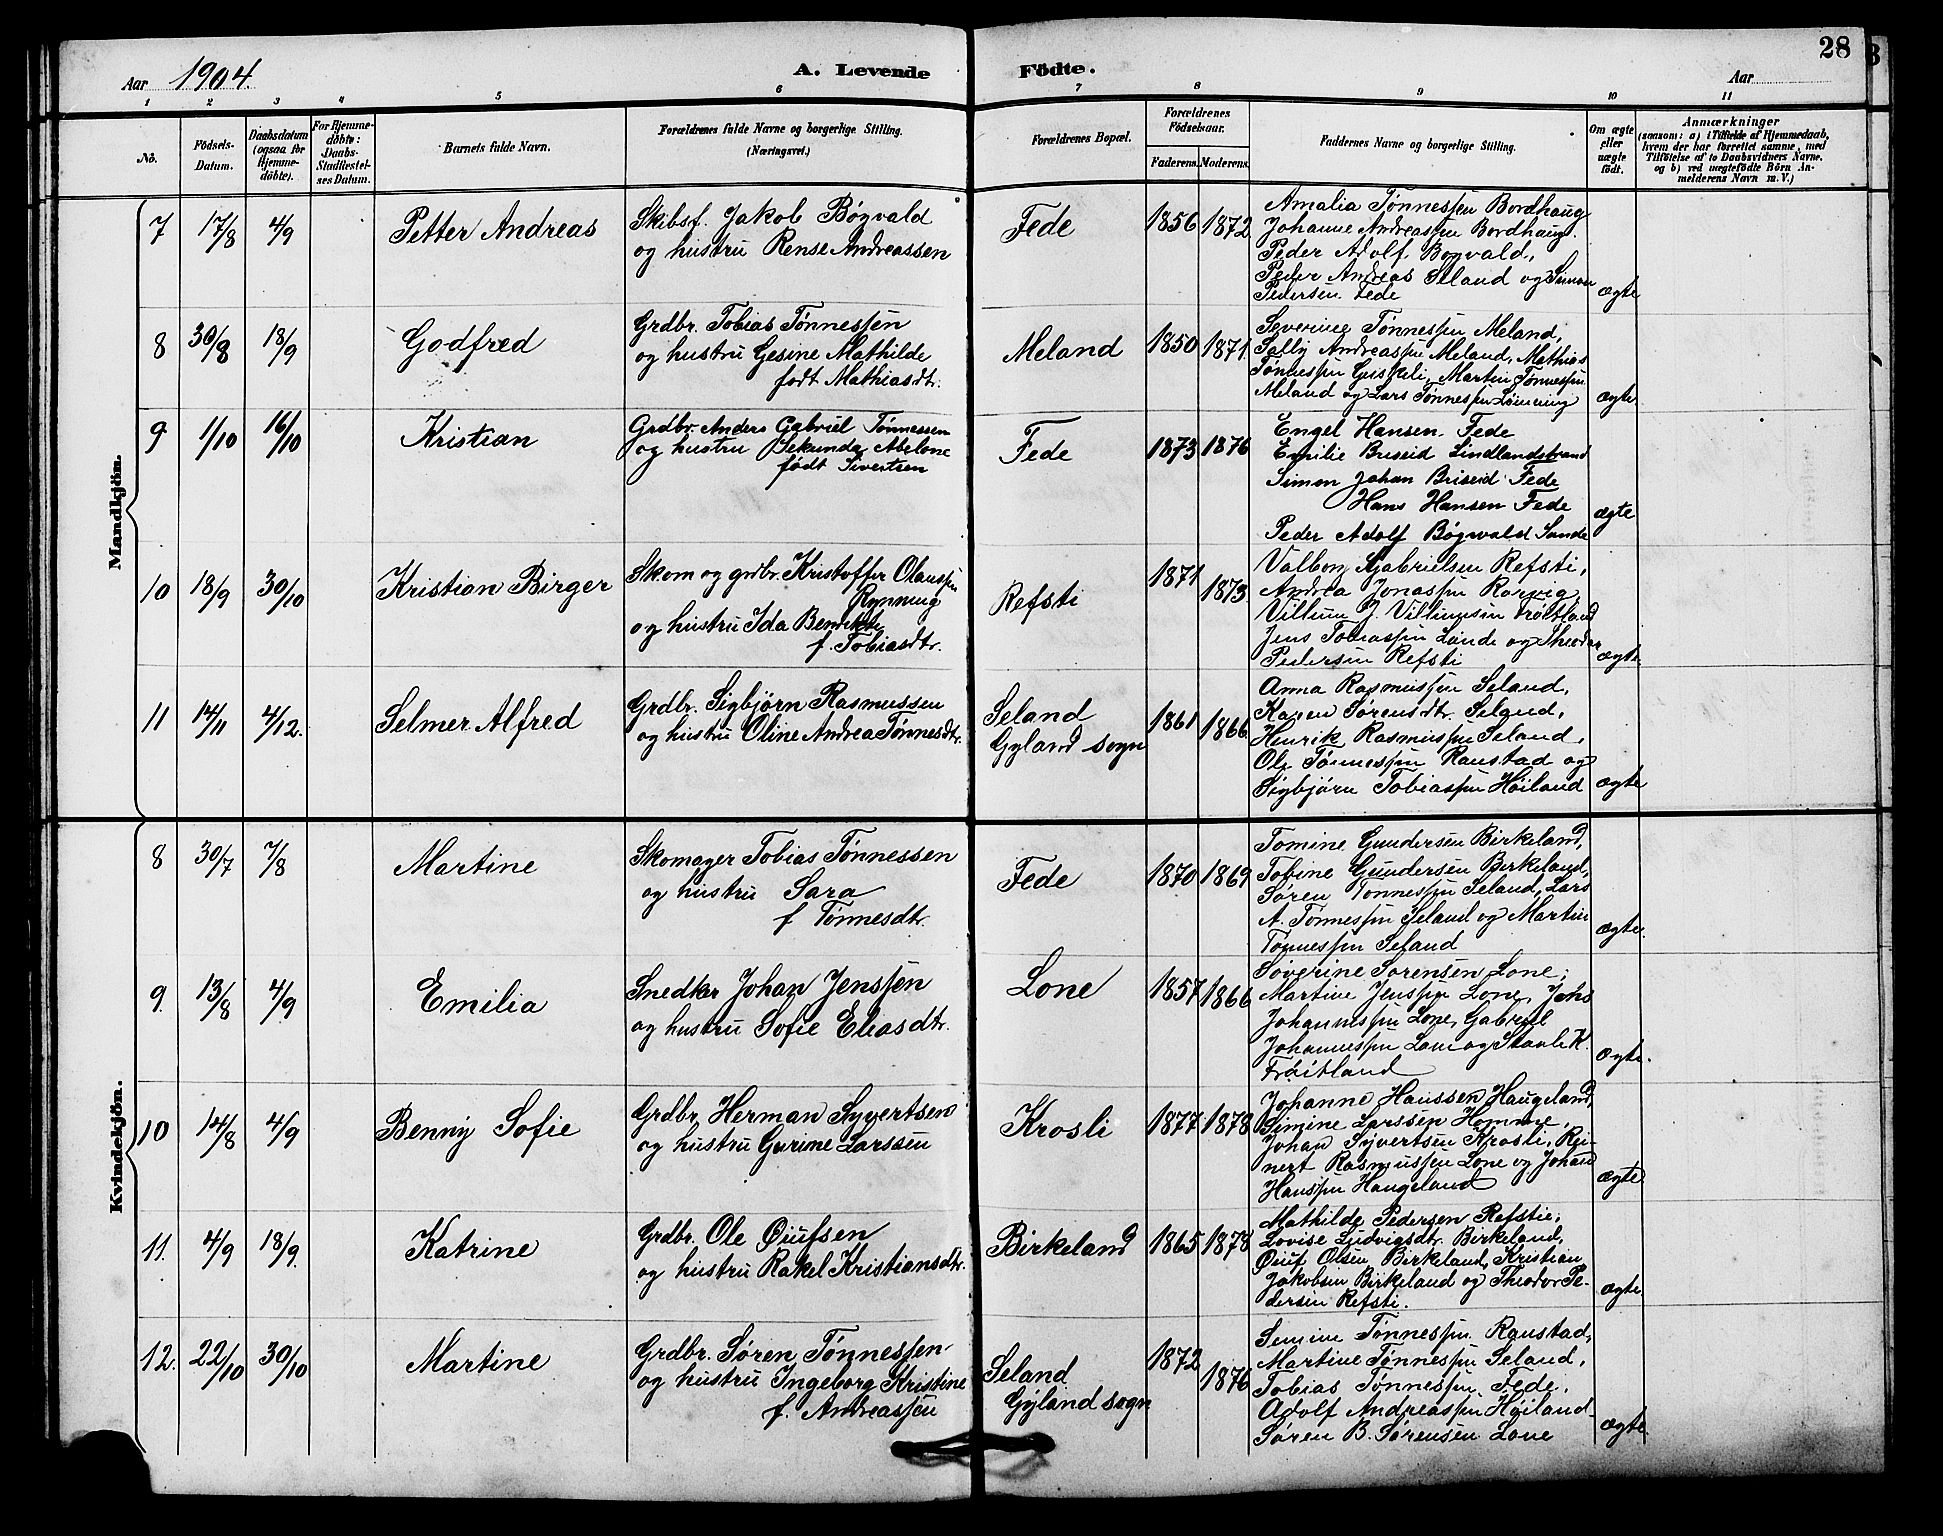 28
Aar 1904.
A. Levende Födte.
Aar
1 2 3 4 5 6 7 8 9 10 11
No.
Födsels-Datum.
Daabsdatum (ogsaa for Hjemmedöbte).
For Hjemmedöbte: Daabs-Stadfæstelses Datum.
Barnets fulde Navn.
Forældrenes fulde Navne og borgerlige Stilling.
(Næringsvei.)
Forældrenes Bopæl.
Forældrenes Födselsaar.
Faderens. Moderens.
Faddernes Navne og borgerlige Stilling.
Om ægte eller uægte födt.
Anmærkninger
(saasom: a) i Tilfælde af Hjemmedaab, hvem der har forrettet samme, med Tilföielse af to Daabsvidners Navne, og b) ved uægtefödte Börn Anmelderens Navn m. V.)
Mandkjön.
7 17/8 4/9 Petter Andreas
Skibsf. Jakob Bøgvald
og hustru Rense Andreassen
Fede 1856 1872
Amalia Tønnessen Bordhaug
Johanne Andreassen Bordhaug.
Peder Adolf Bøgvald,
Peder Andreas Seland og Simon
Pedersen Fede
ægte
8 30/8 18/9 Godfred
Grdbr. Tobias Tønnessen
og hustru Gesine Mathilde
født Mathiasdtr.
Meland 1850 1871
Severine Tønnessen Meland,
Sally Andreassen Meland, Mathias
Tønnessen Guskeli, Martin Tønnessen
Meland og Lars Tønnessen
ægte
9 1/10 16/10 Kristian
Grdbr. Anders Gabriel Tønnessen
og hustru Sekunda Abelone
født Sivertsen
Fede 1873 1876
Engel Hansen Fede
Emilie Briseid Lindlandstrand
Simon Johan Briseid Fede
Hans Hansen Fede
Peder Adolf Bøgwald Sande
ægte
10 18/9 30/10 Kristian Birger
Skom og grdbr. Kristoffer Olaussen
Rynning
og hustru Ida Bendikte
f. Tobiasdtr.
Refsti 1871 1873
Valborg Gabrielsen Refsti,
Andrea Jonassen Rørvig,
Villum J. Villumsen Trøitland
Jens Tobiassen Lande og Theodor
Pedersen Refsti
ægte
11 14/11 4/12. Selmer Alfred
Grdbr. Sigbjørn Rasmussen
og hustru Oline Andrea Tønnesdtr.
Seland
Gyland sogn
1861 1866
Anna Rasmussen Seland,
Karen Sørensdtr. Seland,
Henrik Rasmussen Seland,
Ole Tønnessen Raustad og
Sigbjørn Tobiassen Høiland
ægte
Kvindekjön.
8 30/7 7/8 Martine
Skomager Tobias Tønnessen
og hustru Sara
f Tønnesdtr.
Fede 1870 1869
Tomine Gundersen Birkeland,
Tobine Gundersen Birkeland,
Søren Tønnessen Seland, Lars
A. Tønnessen Seland og Martin
Tønnessen Seland
ægte.
9. 13/8 4/9 Emilia
Snedker Johan Jenssen
og hustru Sofie Eliasdtr.
Lone 1857 1866
Søverine Sørensen Lone,
Martine Jenssen Lone, Johs
Johannessen Lone, Gabriel
Johannessen Lone og Staale K.
Trøitland
ægte.
10 14/8 4/9 Benny Sofie
Grdbr. Herman Syvertsen
og hustru Gurine Larssen
Krosli 1877 1878
Johanne Hanssen Haugeland,
Simine Larssen Homme,
Johan Syvertsen Krosli, Rei-
nert Rasmussen Lone og Johan
Hanssen Haugeland
ægte
11. 4/9 18/9. Katrine
Grdbr. Ole Øiufsen
og hustru Rakel Kristiansdtr.
Birkeland 1865 1878
Mathilde Pedersen Refstie,
Lovise Ludvigsdtr. Birkeland,
Øiuf Olsen Birkeland, Kristian
Jakobsen Birkeland og Theodor Pe-
dersen Refsti.
ægte
12. 22/10 30/10 Martine
Grdbr. Søren Tønnessen
og hustru Ingeborg Kristine
f. Andreassen
Seland
Gyland sogn
1872 1876
Semine Tønnessen Raustad,
Martine Tønnessen Seland,
Tobias Tønnessen Fede,
Adolf Andreassen Høiland
Søren B. Sørensen Lone
ægte